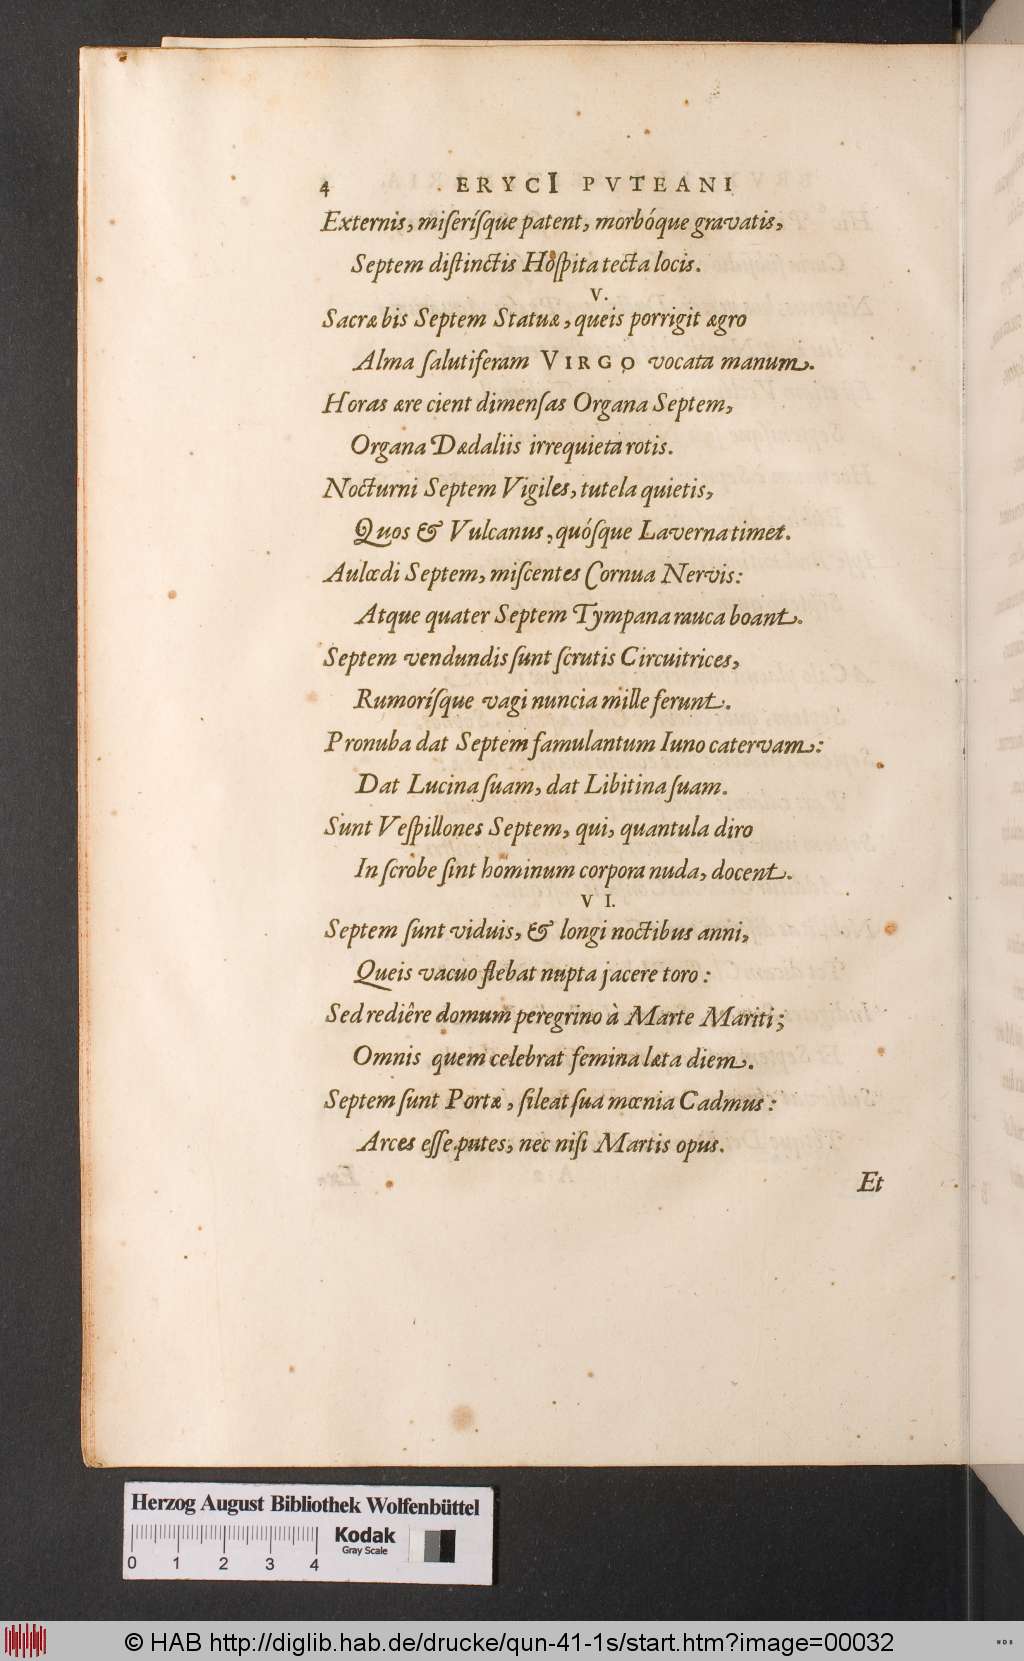 4 ERYCI PVTEANI
Externis, miſeríſque patent, morbóque gravatis,
Septem diſtinctis Hoſpita tecta locis.
V.
Sacræ bis Septem Statuæ, queis porrigit ægro
Alma ſalutiferam VIRGO vocata manum.
Horas ære cient dimenſas Organa Septem,
Organa Dædaliis irrequieta rotis.
Nocturni Septem Vigiles, tutela quietis,
Quos & Vulcanus, quóſque Laverna timet.
Aulœdi Septem, miſcentes Cornua Nervis:
Atque quater Septem Tympana rauca boant.
Septem vendundis ſunt ſcrutis Circuitrices,
Rumoríſque vagi nuncia mille ferunt.
Pronuba dat Septem famulantum Iuno catervam:
Dat Lucina ſuam, dat Libitina ſuam.
Sunt Veſpillones Septem, qui, quantula diro
In ſcrobe ſint hominum corpora nuda, docent.
VI.
Septem ſunt viduis, & longi noctibus anni,
Queis vacuo flebat nupta jacere toro:
Sed rediêre domum peregrino à Marte Mariti;
Omnis quem celebrat femina læta diem.
Septem ſunt Portæ, ſileat ſua mœnia Cadmus:
Arces eſſe putes, nec niſi Martis opus.
Et
Herzog August Bibliothek Wolfenbüttel
0 1 2 3 4
Kodak
Gray Scale
© HAB http://diglib.hab.de/drucke/qun-41-1s/start.htm?image=00032